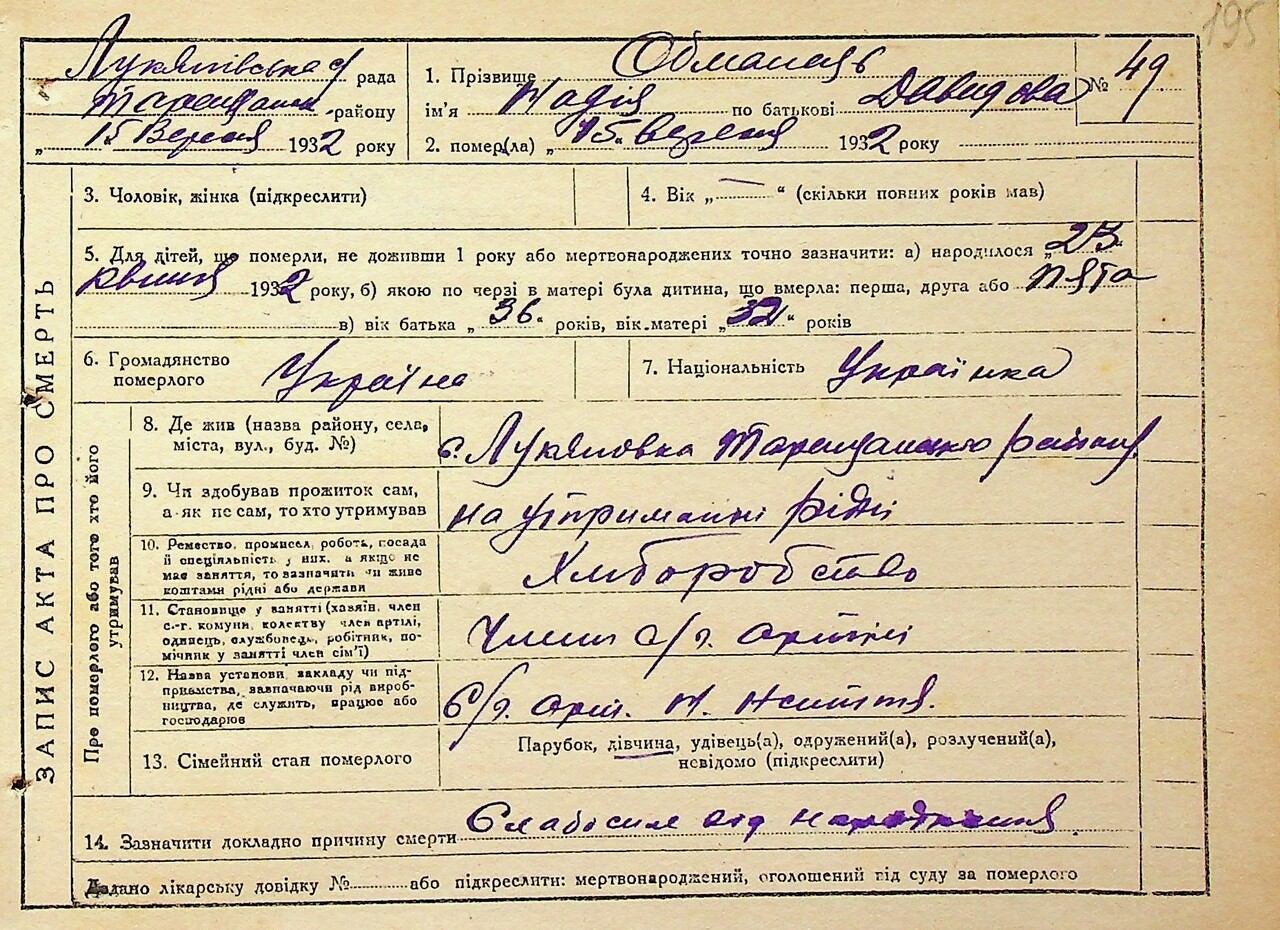 195
Лукянівська с/рада
Таращанськ. району
„15 Вересня 1932 року
1. Прізвище Обманець
ім'я Надія по батькові Давидова
№ 49
2. помер(ла) „15“ вересня 1932 року
3. Чоловік, жінка (підкреслити)
4. Вік „—“ (скільки повних років мав)
5. Для дітей, що померли, не доживши 1 року або мертвонароджених точно зазначити: а) народилося „23“
квітня 1932 року, б) якою по черзі в матері була дитина, що вмерла: перша, друга або пята
в) вік батька „36“ років, вік матері „32“ років
6. Громадянство
померлого Україна
7. Національність Українка
ЗАПИС АКТА ПРО СМЕРТЬ
Про померлого або того хто його
утримував
8. Де жив (назва району, села,
міста, вул., буд. №)
с. Лукяновка Таращанського району
9. Чи здобував прожиток сам,
а як не сам, то хто утримував
на утриманні рідні
10. Ремество, промисел, робота, посада
й спеціяльність у них, а якщо не
має заняття, то зазначити чи живе
коштами рідні або держави
Хліборобство
11. Становище у занятті (хазяїн, член
с.-г. комуни, колективу член артілі,
одинець, службовець, робітник, по-
мічник у занятті член сім'ї)
Член с/г. артілі
12. Назва установи, закладу чи під-
приємства, зазначаючи рід вироб-
ництва, де служить, працює або
господарює
С/г. арт. Н. Життя.
13. Сімейний стан померлого
Парубок, дівчина, удівець(а), одружений(а), розлучений(а),
невідомо (підкреслити)
14. Зазначити докладно причину смерти Слабосила від народження
Додано лікарську довідку № або підкреслити: мертвонароджений, оголошений від суду за померлого